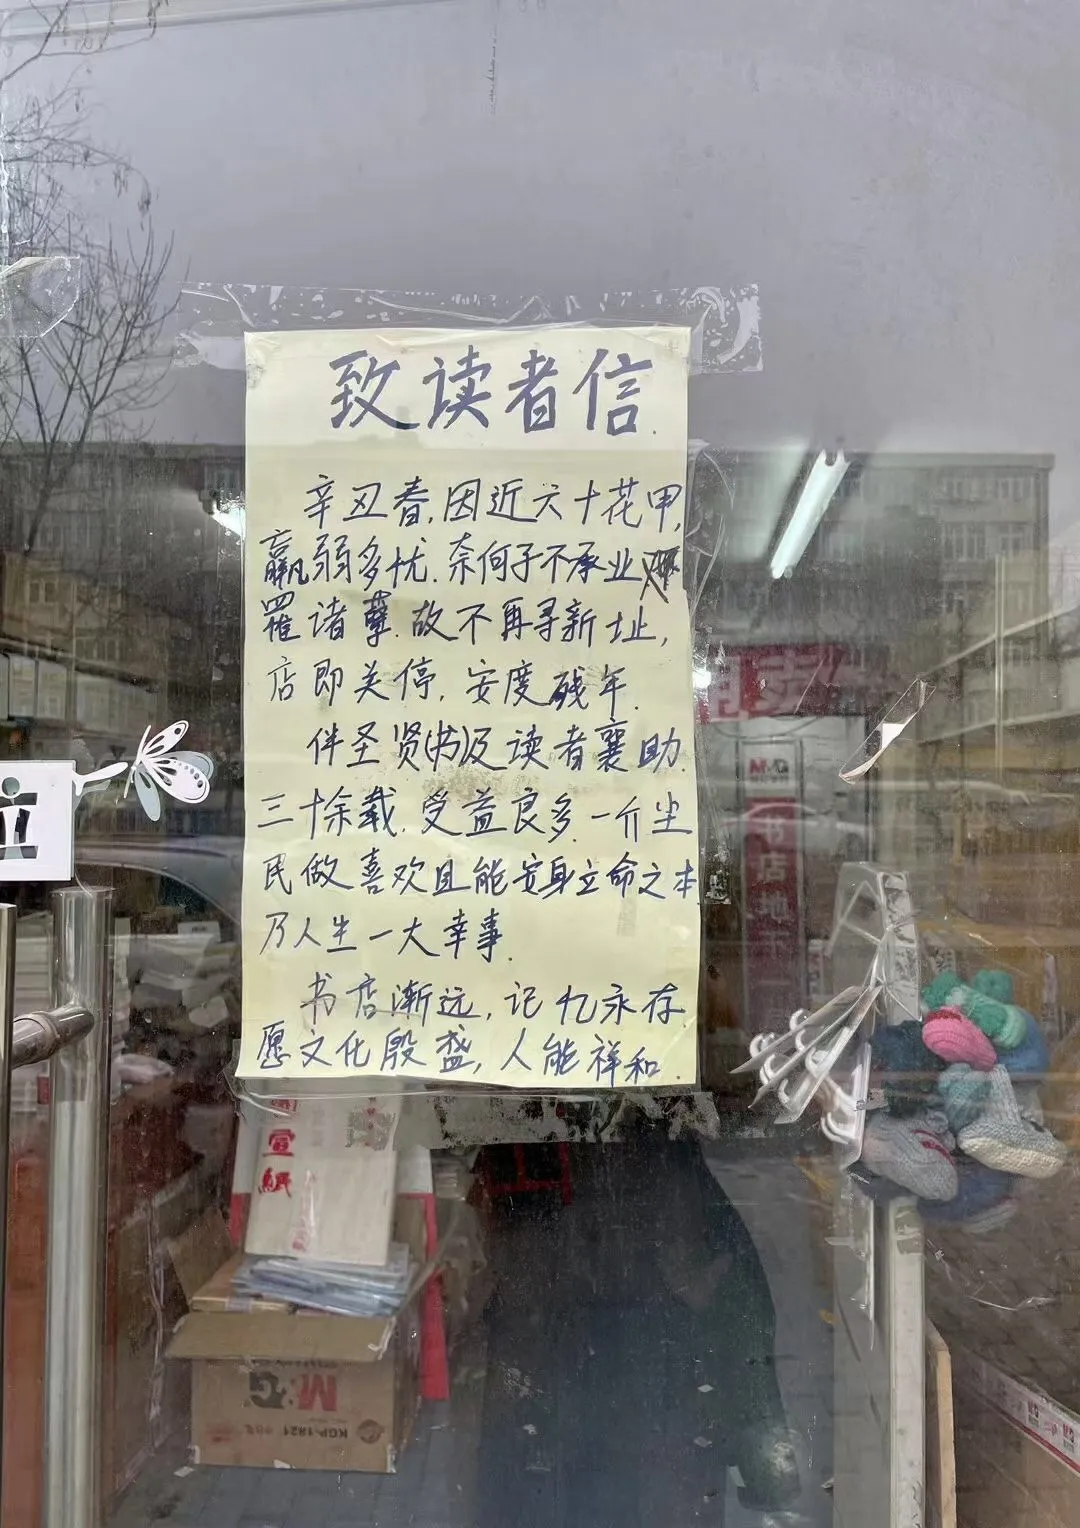 致读者信
辛丑春,因近六十花甲,
羸弱多忧.奈何子不承业
罹诸孽.故不再寻新址,
店即关停,安度残年.
伴圣贤(书)及读者襄助.
三十余载.受益良多.一介尘
民做喜欢且能安身立命之本
乃人生一大幸事.
书店渐远,记忆永存
愿文化殷盛,人能祥和.
宣
紙
M&G
KGP-1821
书店地下一